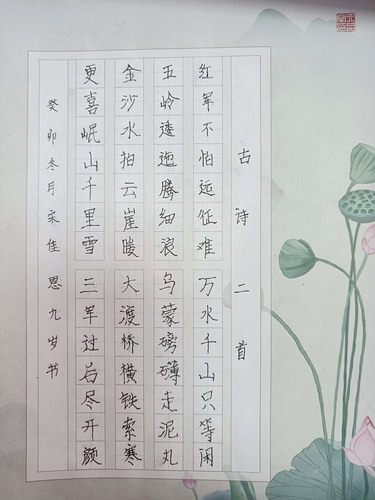 古诗二首
红军不怕远征难万水千山只等闲
五岭逶迤腾细浪乌蒙磅礴走泥丸
金沙水拍云崖暖大渡桥横铁索寒
更喜岷山千里雪三军过后尽开颜
癸卯冬月宋佳恩九岁书